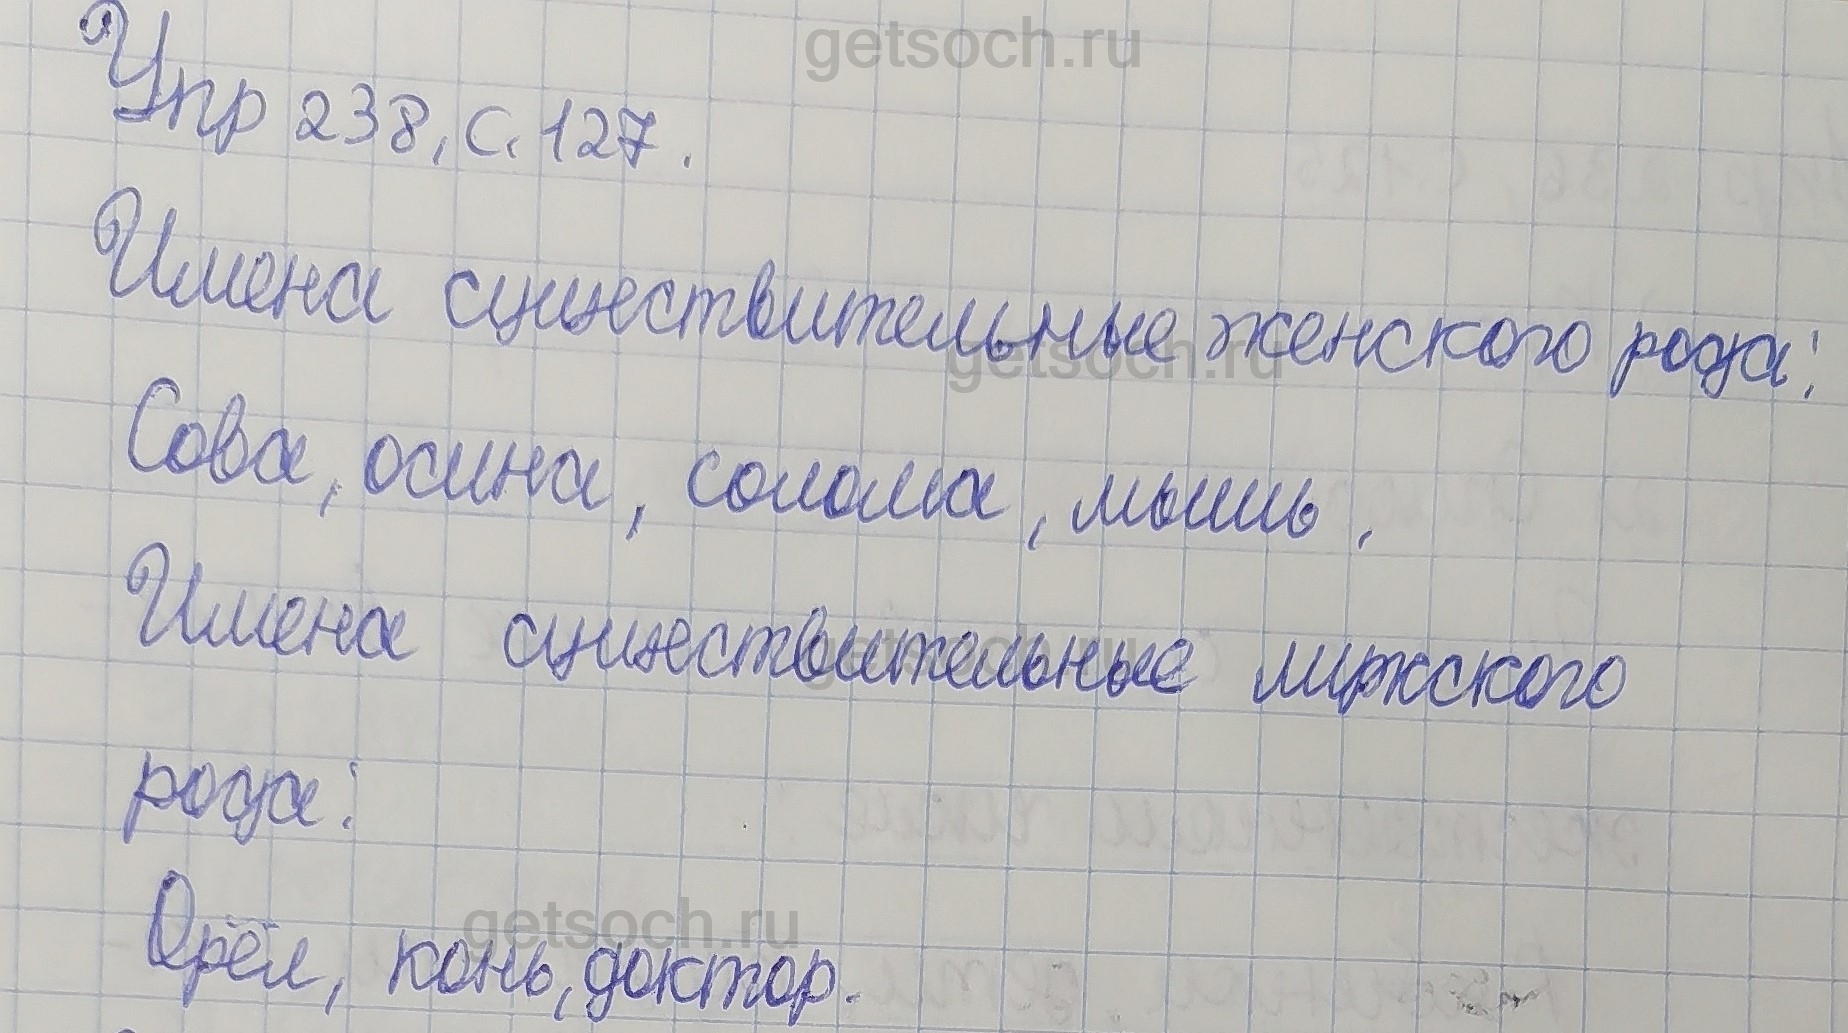 getsoch.ru
Упр 238, с. 127.
Имена существительные женского рода:
getsoch.ru
Сова, осина, солома, мышь.
Имена существительные мужского
getsoch.ru
рода:
Орёл, конь, доктор.
getsoch.ru